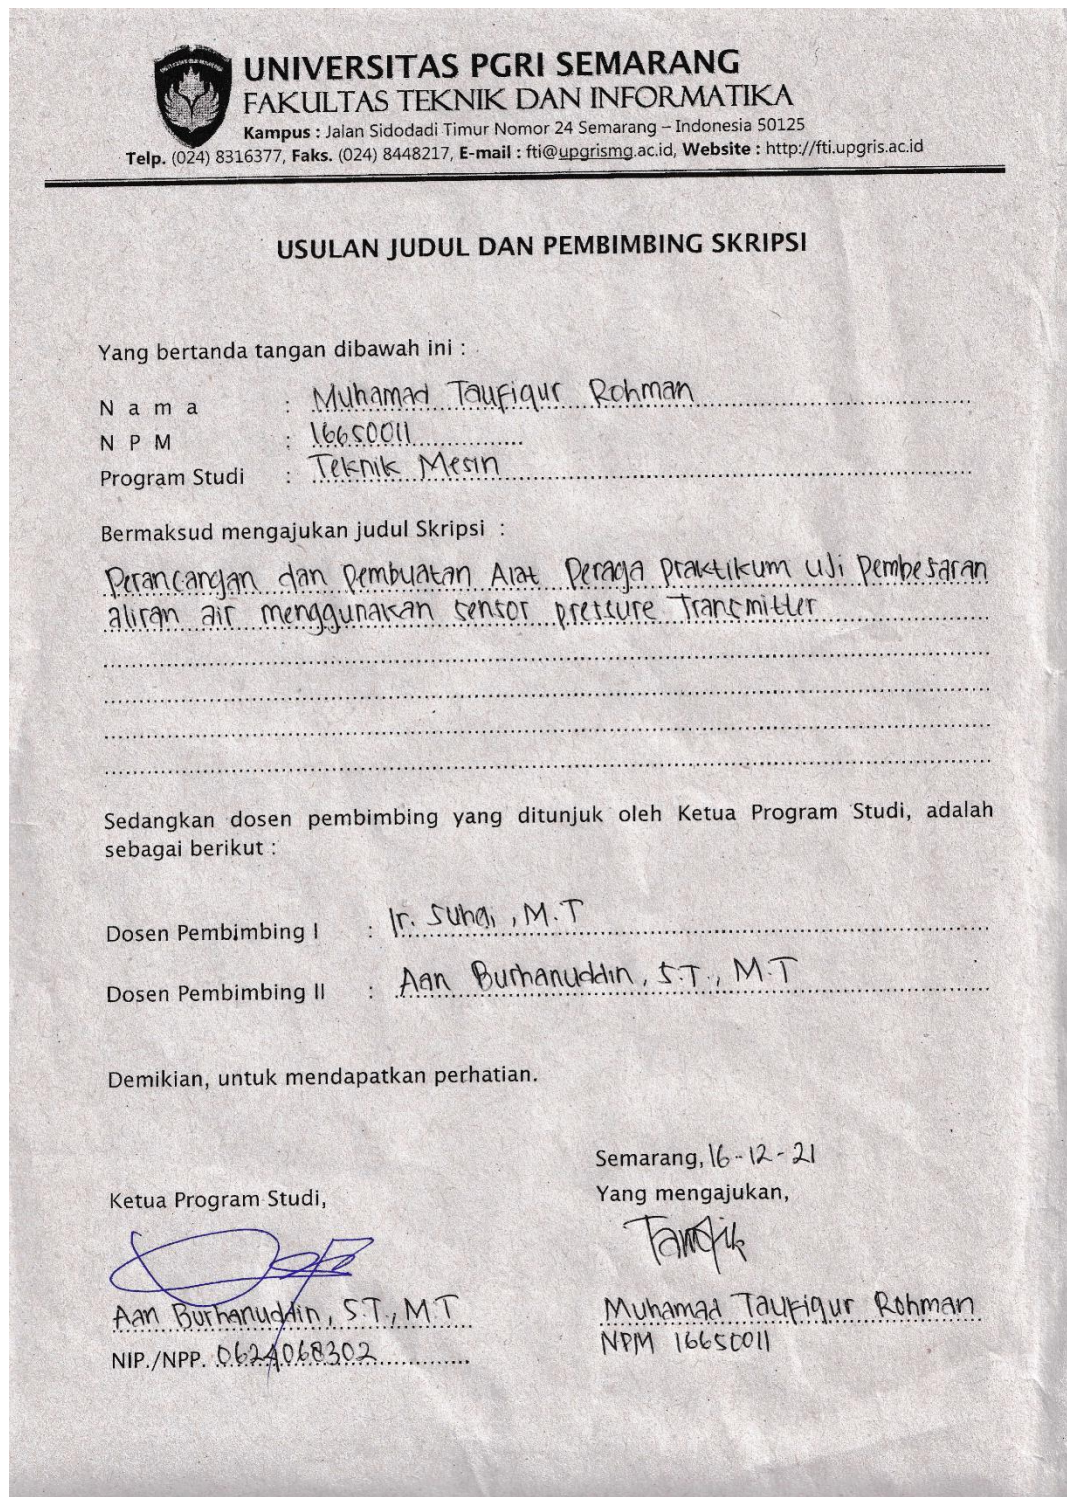 UNIVERSITAS PGRI SEMARANG
FAKULTAS TEKNIK DAN INFORMATIKA
Kampus : Jalan Sidodadi Timur Nomor 24 Semarang – Indonesia 50125
Telp. (024) 8316377, Faks. (024) 8448217, E-mail : fti@upgrismg.ac.id, Website : http://fti.upgris.ac.id
USULAN JUDUL DAN PEMBIMBING SKRIPSI
Yang bertanda tangan dibawah ini :
N a m a : Muhamad Taufiqur Rohman
N P M : 16650011
Program Studi : Teknik Mesin
Bermaksud mengajukan judul Skripsi :
Perancangan dan Pembuatan Alat Peraga Praktikum Uji Pembesaran
aliran air menggunakan sensor pressure Transmitter
Sedangkan dosen pembimbing yang ditunjuk oleh Ketua Program Studi, adalah
sebagai berikut :
Dosen Pembimbing I : Ir. Suhdi, M.T
Dosen Pembimbing II : Aan Burhanuddin, S.T., M.T
Demikian, untuk mendapatkan perhatian.
Semarang, 16-12-21
Ketua Program Studi, Yang mengajukan,
Aan Burhanuddin, S.T., M.T Muhamad Taufiqur Rohman
NIP./NPP. 0624068302 NPM 16650011